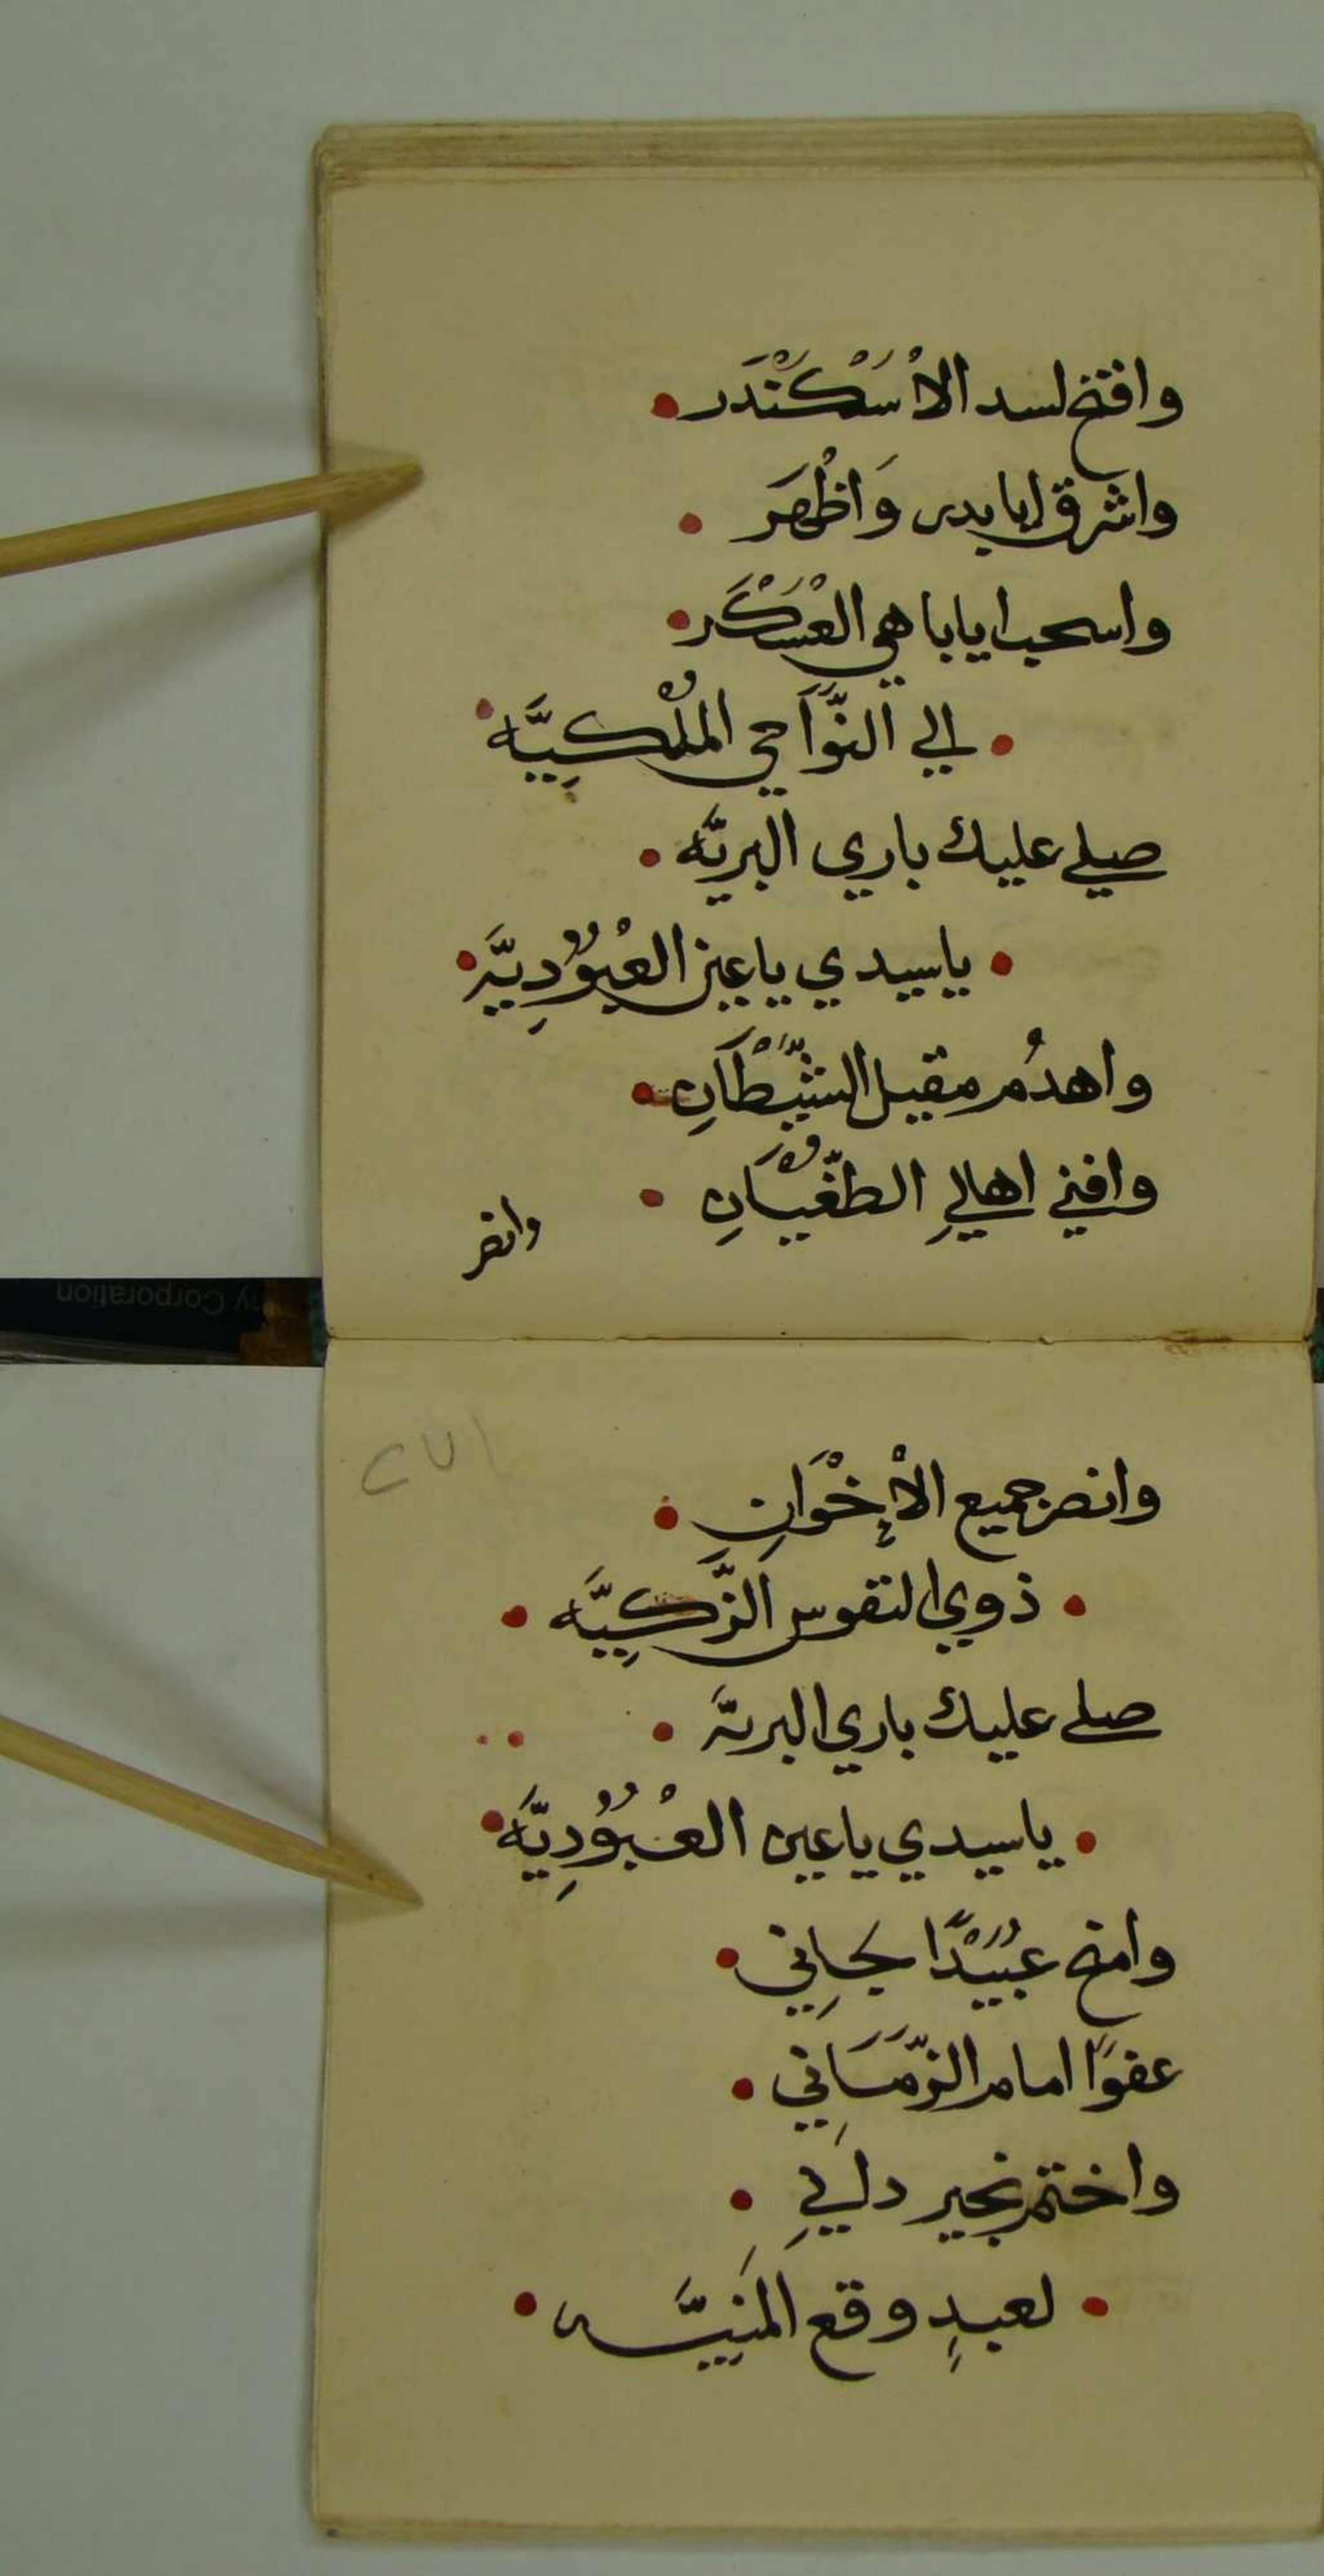 وافتح لسد الاسْكَنْدَر
واشرق ايا بدر وَاظْهَر
واسحب ايا باهي العَسْكَر
الي النَّوَاحي الملْكِيَّه
صلي عليك باري البريَّه
ياسيدي ياعين العُبُوْدِيَّة
واهدُم مقيل الشَّيْطَانِ
وافني اهالِي الطغْيَانِ
وانصر
وانصر جميع الاِخْوَانِ
ذوي النفوس الزَّكِيَّه
صلي عليك باري البريَّه
ياسيدي ياعين العُبُوْدِيَّه
وامنح عُبَيْدًا جَانِي
عفوًا امام الزَّمَانِي
واختم بخير دالِي
لعبدٍ وقع المَنِيَّه
ny Corporation